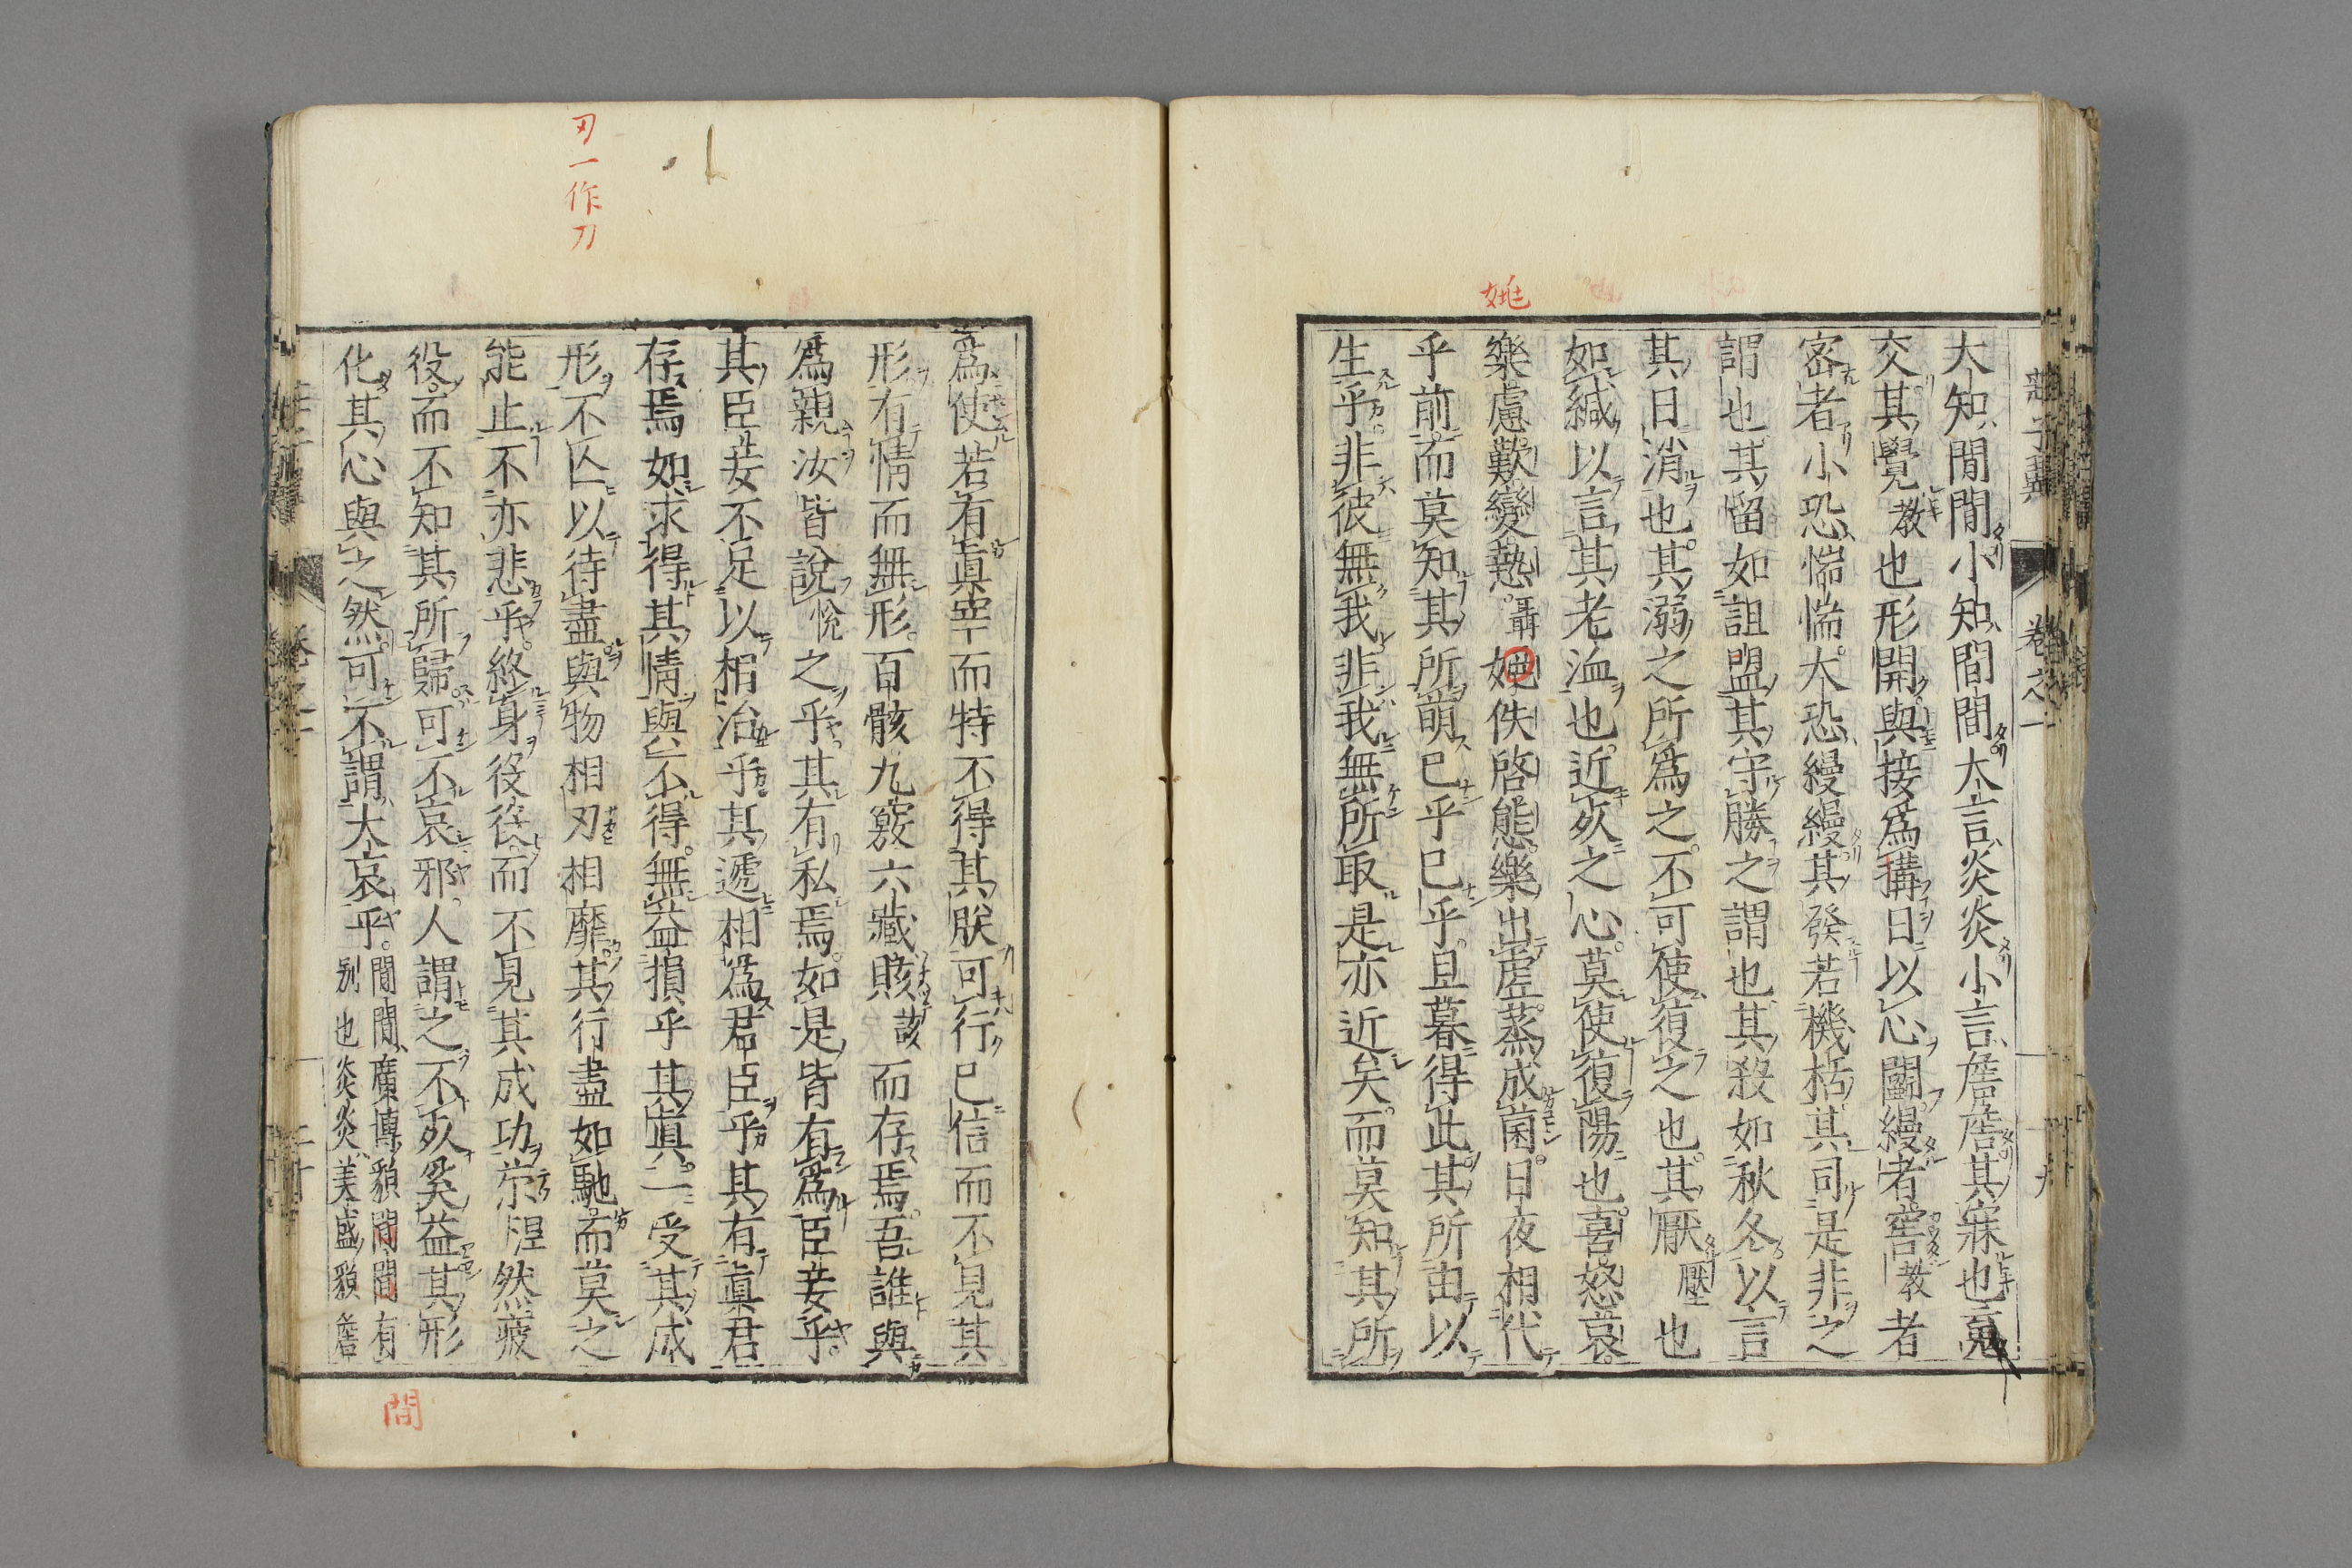 姚
大知閒閒小知間間大言炎炎小言詹詹其寐也䰟
交其覺教也形開與接爲搆日以心鬭縵者窖教者
密者小恐惴惴大恐縵縵其發若機栝其司是非之
謂也其留如詛盟其守勝之謂也其殺如秋冬以言
其日消也其溺之所爲之不可使復之也其厭壓也
如緘以言其老洫也近死之心莫使復陽也喜怒哀
樂慮歎變慹聶姚佚啓態樂出虛蒸成菌日夜相代
乎前而莫知其所萌已乎已乎旦暮得此其所由以
生乎非彼無我非我無所取是亦近矣而莫知其所
莊子翼 卷之一 九
刃一作刀
爲使若有眞宰而特不得其朕可行已信而不見其
形有情而無形百骸九竅六藏賅該而存焉吾誰與
爲親汝皆說悅之乎其有私焉如是皆有爲臣妾乎
其臣妾不足以相治乎其遞相爲君臣乎其有眞君
存焉如求得其情與不得無益損乎其眞一受其成
形不亡以待盡與物相刃相靡其行盡如馳而莫之
能止不亦悲乎終身役役而不見其成功苶涅然疲
役而不知其所歸可不哀邪人謂之不死奚益其形
化其心與之然可不謂大哀乎
閒閒廣博貌間間有
別也炎炎美盛貌詹
間